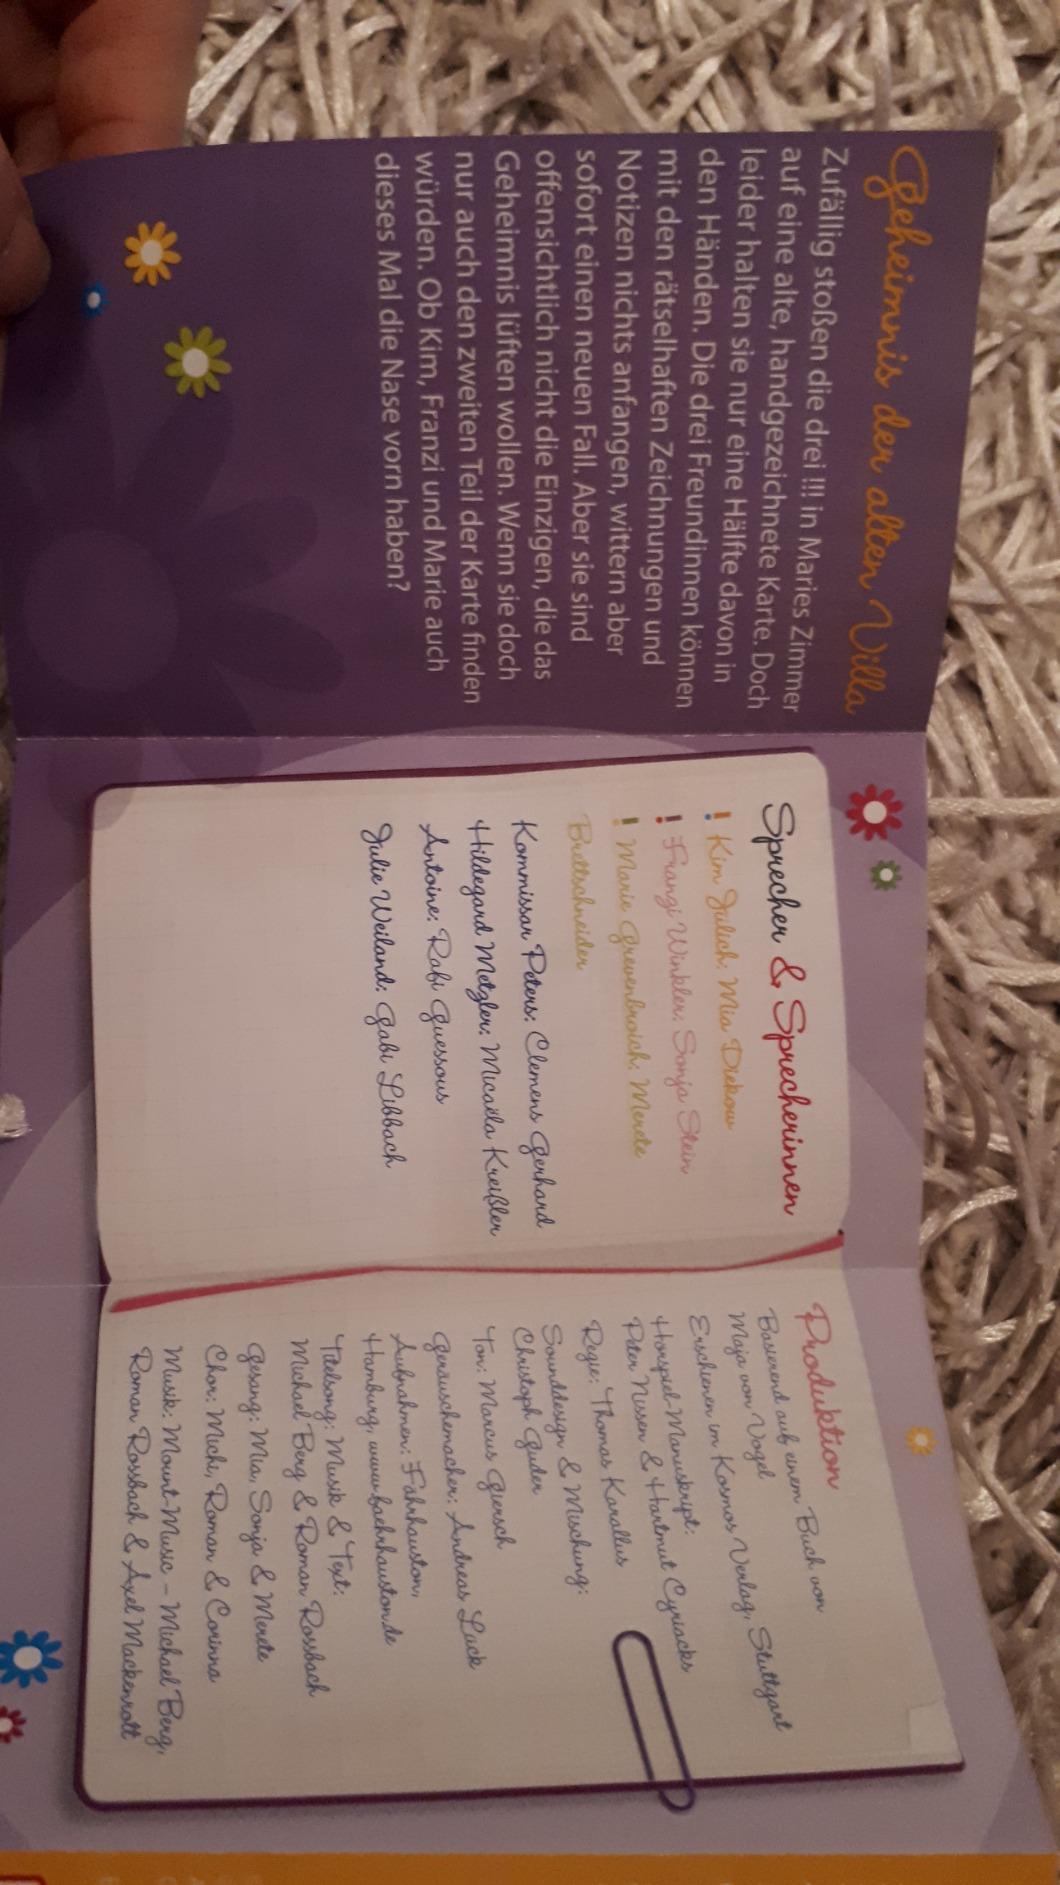 Geheimnis der alten Villa
Zufällig stoßen die drei !!! in Maries Zimmer
auf eine alte, handgezeichnete Karte. Doch
leider halten sie nur eine Hälfte davon in
den Händen. Die drei Freundinnen können
mit den rätselhaften Zeichnungen und
Notizen nichts anfangen, wittern aber
sofort einen neuen Fall. Aber sie sind
offensichtlich nicht die Einzigen, die das
Geheimnis lüften wollen. Wenn sie doch
nur auch den zweiten Teil der Karte finden
würden. Ob Kim, Franzi und Marie auch
dieses Mal die Nase vorn haben?
Sprecher & Sprecherinnen
! Kim Jülich: Mia Diekow
! Franzi Winkler: Sonja Stein
! Marie Grevenbroich: Merete
Brettschneider
Kommissar Peters: Clemens Gerhard
Hildegard Metzler: Micaëla Kreißler
Antoine: Rabi Guessous
Julie Weiland: Gabi Libbach
Produktion
Basierend auf einem Buch von
Maja von Vogel
Erschienen im Kosmos Verlag, Stuttgart
Hörspiel-Manuskript:
Peter Nissen & Hartmut Cyriacks
Regie: Thomas Karallus
Sounddesign & Mischung:
Christoph Guder
Ton: Marcus Giersch
Geräuschmacher: Andreas Lück
Aufnahmen: Fährhauston,
Hamburg, www.faehrhauston.de
Titelsong: Musik & Text:
Michael Berg & Roman Rossbach
Gesang: Mia, Sonja & Merete
Chor: Michi, Roman & Corinna
Musik: Mount-Music – Michael Berg,
Roman Rossbach & Axel Mackenrott